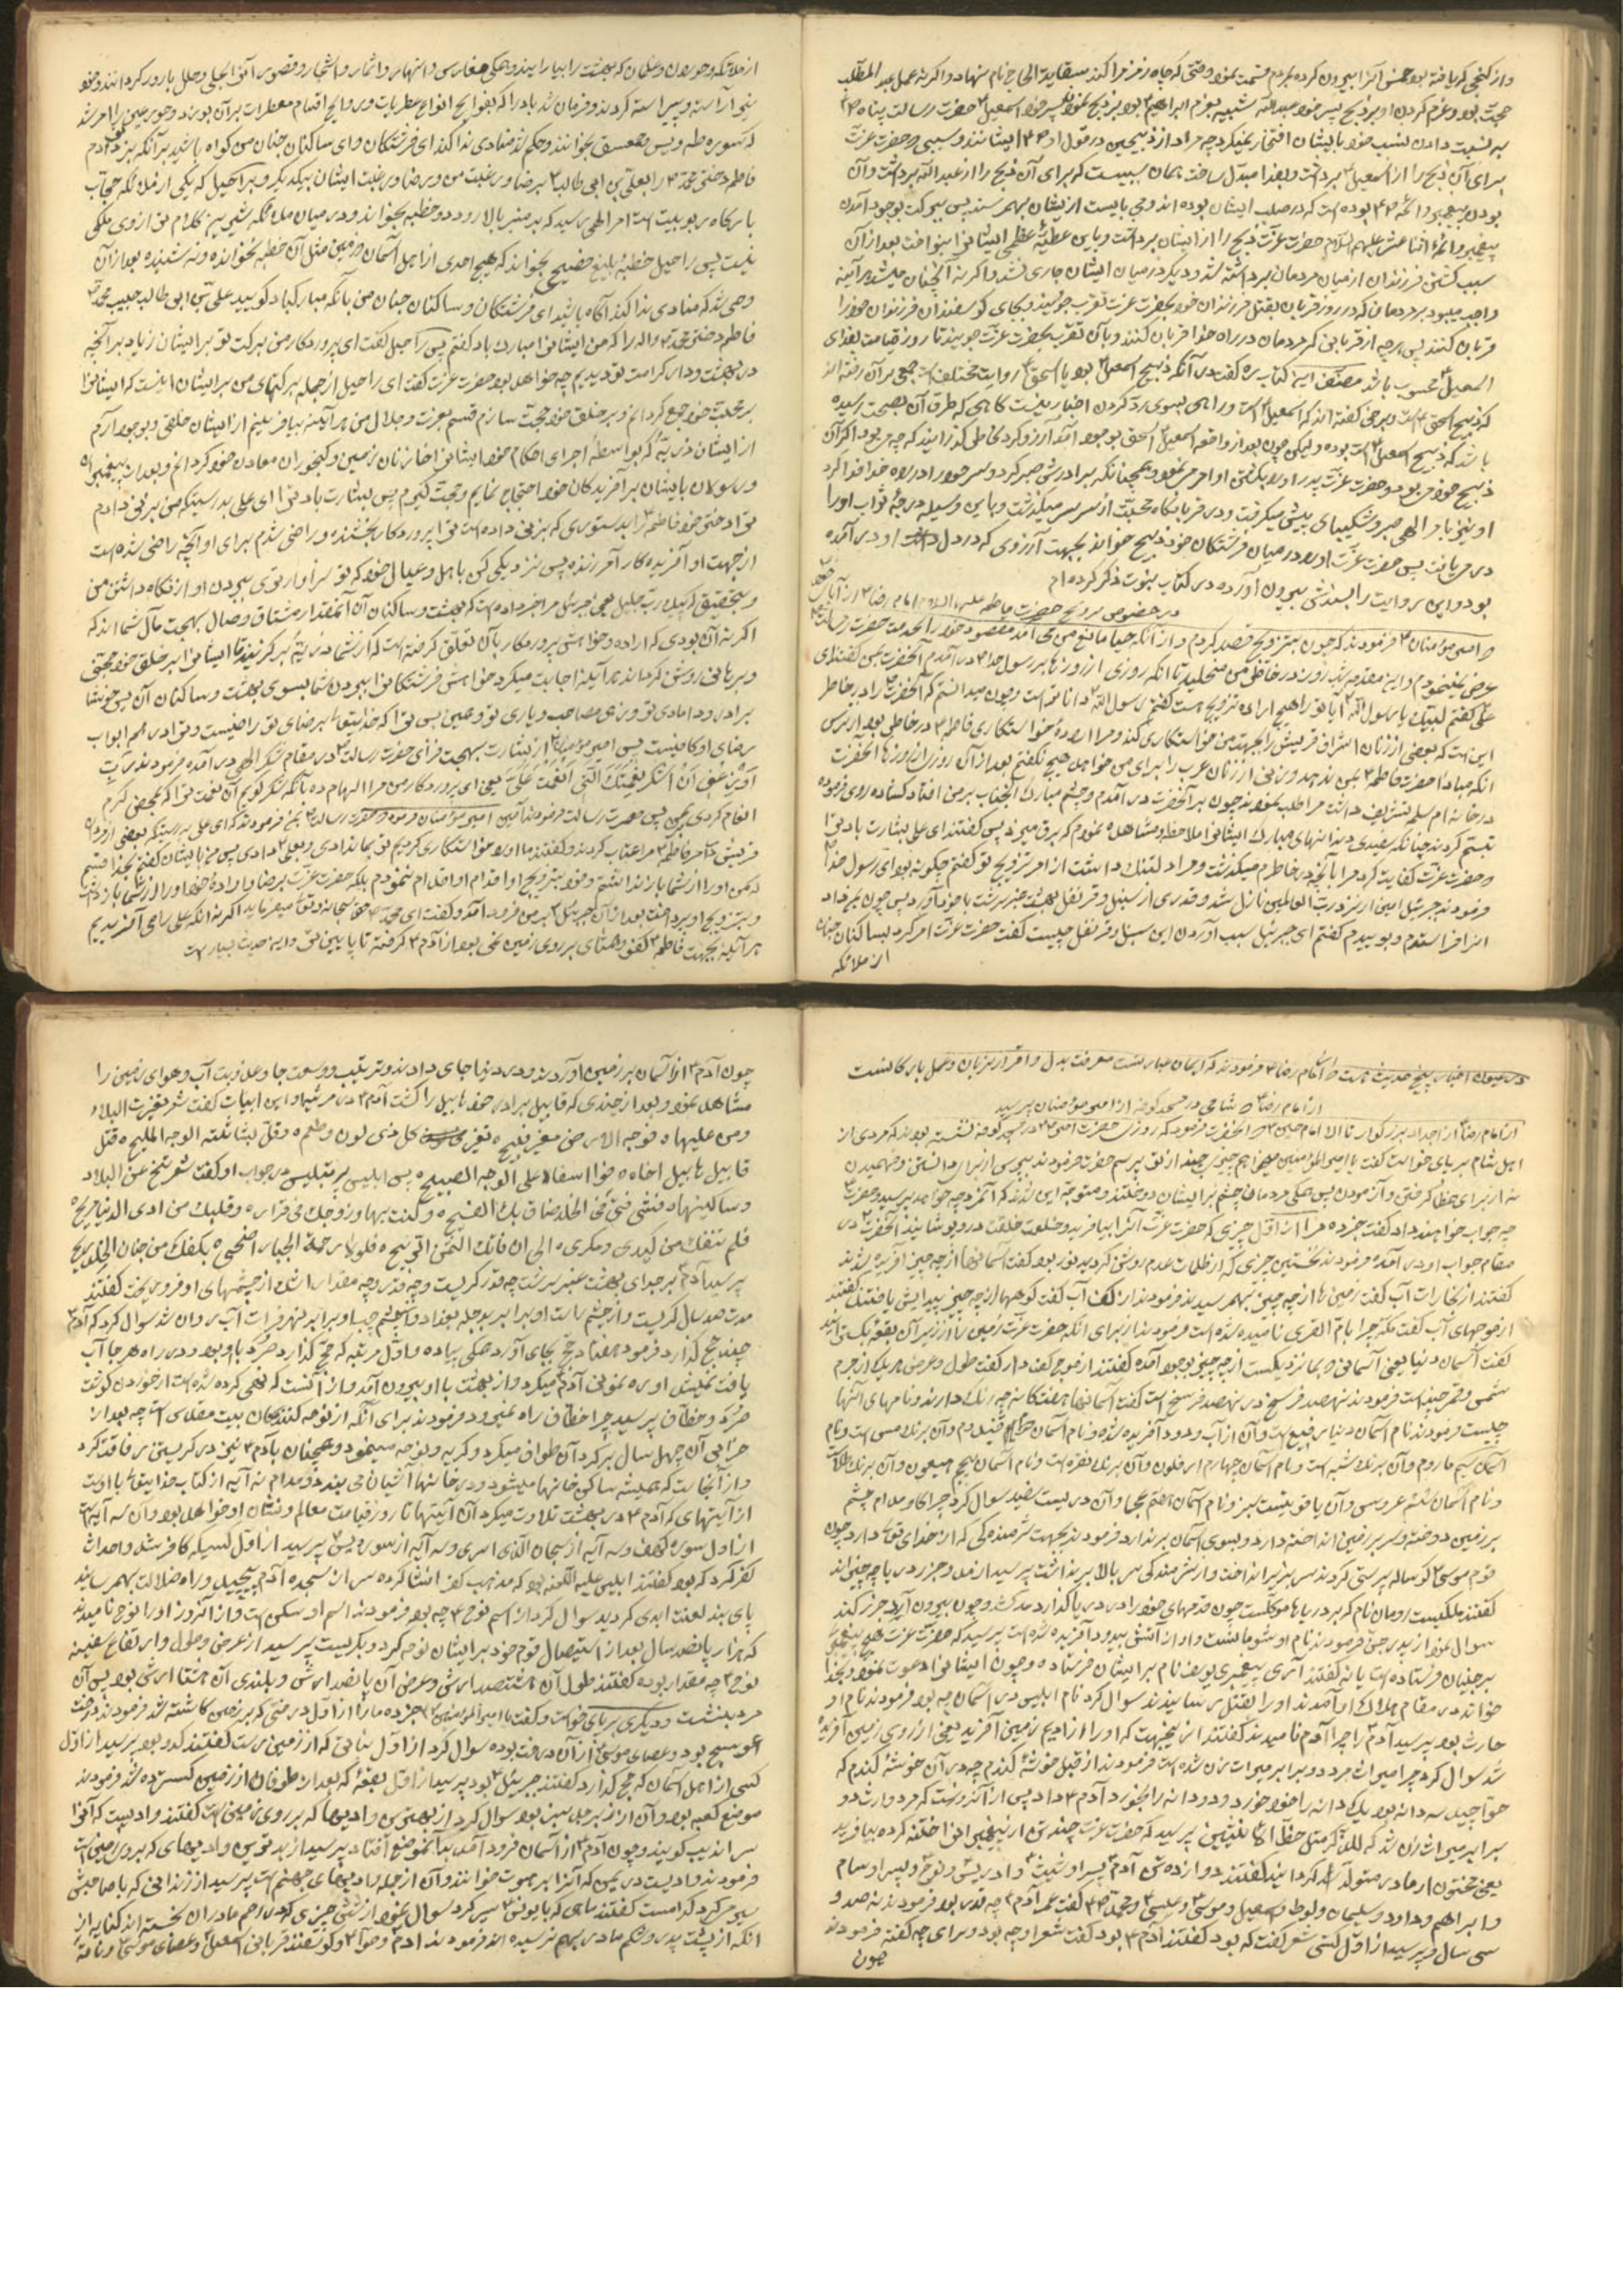 واز گنجی که یافته بود خمس آنرا بیرون کرده بمردم قسمت نمود وقتی که چاه زمزم را کند سقایة الحاج نام نهاد و اگر نه عمل عبد المطلب
حجت بود و عزم کردن او بر ذبح پسر خود عبدالله شبیه بعزم ابراهیم بود بر ذبح پسر خود اسمعیل حضرت رسالت پناه
به نسبت دادن نسب خود بایشان افتخار نمیکرد چه مراد از ذبیحین در قول او ایشانند و سببی که حضرت عزت
برای آن ذبح را از اسمعیل برداشت و بفدا مبدل ساخت همان سببست که برای آن ذبح را از عبدالله برداشت و آن
بودن پیغمبر و ائمه بوده است که در صلب ایشان بوده اند و می بایست از ایشان بهم رسند پس ببرکت بوجود آمدن
پیغمبر و ائمه اثنا عشر علیهم السلام حضرت عزت ذبح را از ایشان برداشت و باین عطیه عظمی ایشانرا بنواخت بعد از آن
سبب کشتن فرزندان از میان مردمان برداشته شد و دیگر در میان ایشان جاری نشد و اگر نه آنچنان میشد هر آینه
واجب میبود بر مردمان که در روز قربان بقتل فرزندان خود بحضرت عزت تقرب جویند و بجای گوسفندان فرزندان خود را
قربان کنند پس هرچه از قربانی که مردمان در راه خدا قربان کنند و بآن تقرب بحضرت عزت جویند تا روز قیامت بفدای
اسمعیل محسوب باشد مصنف این کتاب ره گفت در آنکه ذبیح اسمعیل بود یا اسحق روایت مختلف است جمعی بر آن رفته اند
که ذبیح اسحق است و برخی گفته اند که اسمعیل است و راهی بسوی رد کردن اخبار نیست گاهی که طرق آن بصحت رسیده
باشد که ذبیح اسمعیل است بوده و لیکن چون بعد از واقعه اسمعیل اسحق بوجود آمد آرزو کرد
ذبیح خود می بود و حضرت عزت پدر او را بکشتن او امر می نمود و همچنانکه برادرش صبر کرد و سر خود را در راه خدا فدا کرد
او نیز بامر الهی صبر و شکیبائی پیش میگرفت و در قربانگاه محبت از سر سر میگذشت و باین وسیله درجه ثواب او را
در می یافت پس حضرت عزت او را در میان فرشتگان خود ذبیح خواند بجهت آرزوی که در دل داشت او در آمده
بود و این روایت را بسندش بیرون آورده در کتاب نبوت ذکر کرده ام
در خصوص تزویج حضرت فاطمه علیها السلام امام رضا از آباء
و امیر مؤمنان فرمودند که چون بتزویج قصد کردم و از آنکه حیا مانع من می آمد مقصود خود را بخدمت حضرت رسالت
عرض نمینمودم و این مقدمه شب و روز در خاطر من میخلید تا آنکه روزی از روزها بر رسول خدا در آمدم آنحضرت بمن گفت ای
علی گفتم لبیک یا رسول الله آیا تو را هیچ اراده تزویج هست گفتم رسول الله داناتر است و چون میدانستم که آنحضرت را در خاطر
این است که بعضی از زنان اشراف قریش را بجهت من خواستگاری کند و مرا اراده خواستگاری فاطمه در خاطر بود از ترس
آنکه مبادا حضرت فاطمه بمن ندهد و زنی از زنان عرب را برای من خواهد هیچ نگفتم بعد از آن روزی از روزها آنحضرت
در خانه ام سلمه تشریف داشت مرا طلب نمودند چون بر آنحضرت در آمدم و چشم مبارک آنجناب بر من افتاد گشاده روی فرموده
تبسم کردند چنانکه سفیدی دندانهای مبارک ایشانرا ملاحظه و مشاهده نمودم که برق میزند پس گفتند ای علی بشارت باد ترا
که حضرت عزت کفایت کرد مرا بآنچه در خاطرم میگذشت و مرا دلتنگ داشت از امر تزویج تو گفتم چگونه بود ای رسول خدا
فرمودند جبرئیل امین از نزد رب العالمین نازل شد و قدری از سنبل و قرنفل بهشت عنبر سرشت با خود آورد پس چون بمن داد
آنرا فرا ستدم و بوییدم گفتم ای جبرئیل سبب آوردن این سنبل و قرنفل چیست گفت حضرت عزت امر کرد بساکنان جنان
از ملائکه
از ملائکه و حوریان و غلمان که بهشت را بیارایند و همگی مغارس و انهار و اثمار و اشجار و قصور آنرا بحلی و حلل بارور گردانند و خود
نیز آراسته و پیراسته گردند و فرمان شد باد را که بفوایح انواع عطریات و روایح اقسام معطرات بر آن بوزد و حور عین را امر شد
که سوره طه و یس و حمعسق بخوانند و حکم شد منادی ندا کند ای فرشتگان و ای ساکنان جنان من گواه باشید بر آنکه بزنی دادم
فاطمه دختر محمد را بعلی بن ابی طالب برضا و رغبت من و رضا و رغبت ایشان بیکدیگر و براحیل که یکی از ملائکه حجاب
بارگاه ربوبیت است امر الهی رسید که بر منبر بالا رود و خطبه بخواند و در میان ملائکه شیرین کلام تر از وی ملکی
نیست پس راحیل خطبه بلیغ فصیح بخواند که هیچ احدی از اهل آسمان و زمین مثل آن خطبه نخوانده و نه شنیده بعد از آن
وحی شد که منادی ندا کند آگاه باشید ای فرشتگان و ساکنان جنان من بآنکه مبارکباد گویید علی بن ابی طالب حبیب محمد
و فاطمه دختر محمد را که من ایشانرا مبارک باد گفتم پس راحیل گفت ای پروردگار من برکت تو بر ایشان زیاد بر آنچه
در بهشت و دار کرامت تو دیدیم چه خواهد بود حضرت عزت گفت ای راحیل از جمله برکتهای من بر ایشان اینست که ایشانرا
بر محبت خود جمع گردانم و بر خلق خود حجت سازم قسم بعزت و جلال من هر آینه بیافرینم از ایشان خلقی و بوجود آرم
از ایشان ذریه که بواسطه اجرای احکام خود ایشانرا خازنان زمین و گنجوران معادن خود گردانم و بعد از پیغمبران
و رسولان بایشان بر آفریدگان خود احتجاج نمایم و حجت گیرم پس بشارت باد ترا ای علی بدرستیکه من بزنی دادم
ترا دختر خود فاطمه را بدستوری که بزنی داده است ترا پروردگار بخشنده و راضی شدم برای او بآنچه راضی شده است
از جهت او آفریده کار آفرزنده پس نزدیکی کن با اهل و عیال خود که تو سزاوارتری ببودن او از نگاه داشتن من
و بتحقیق که پیک رب جلیل یعنی جبرئیل مرا خبر داده است که بهشت و ساکنان آن آنمقدار مشتاق وصال بهجت مآل شما اند که
اگر نه آن بودی که اراده و خواهش پروردگار بآن تعلق گرفته است که از شما ذریه برگزیند تا ایشانرا بر خلق خود حجتی
و برهانی روشن گرداند هر آینه اجابت میکرد خواهش فرشتگانرا ببردن شما بسوی بهشت و ساکنان آن پس خوشا
برادر و دامادی تو و زهی مصاحب و یاری تو و همین بس ترا که خدایتعالی برضای تو راضیست و ترا در همه ابواب
رضای او کافیست پس امیر مؤمنان از بشارت بهجت فزای حضرت رسالت در مقام شکر الهی در آمده فرمودند رب
اوزعنی ان اشکر نعمتک التی انعمت علی یعنی ای پروردگار من مرا الهام ده بآنکه شکر گویم آن نعمت ترا که بمحض کرم
انعام کردی بمن پس حضرت رسالت فرمودند آمین امیر مؤمنان فرموده حضرت رسالت بمن فرمودند که ای علی بدرستیکه بعضی از مردان
قریش در امر فاطمه مرا عتاب کردند و گفتند ما او را خواستگاری کردیم تو بما ندادی و بعلی دادی پس من بایشان گفتم بخدا قسم
که من او را از شما باز نداشتم و خود بتزویج او اقدام ننمودم بلکه حضرت عزت برضا و اراده خود او را از شما باز داشت
و بتزویج او پرداخت بعد از آن جبرئیل بر من فرود آمد و گفت ای محمد حق سبحانه و تعالی میفرماید اگر نه آنکه علی را می آفریدیم
هر آینه بجهت فاطمه کفو و همتای بر روی زمین نمی بود از آدم گرفته تا پایین تر و این حدیث بسیار است
در عیون اخبار پنج حدیث هست و امام رضا فرمودند که ایمان عبارتست معرفت بدل و اقرار بزبان و عمل بارکانست
از امام رضا و شامی در مسجد کوفه از امیر مؤمنان پرسید
از امام رضا از اجداد بزرگوار تا امام حسین آنحضرت فرمود که روزی حضرت امیر در مسجد کوفه نشسته بودند که مردی از
اهل شام برپای خواست گفت یا امیرالمؤمنین میخواهم چیزی چند از تو بپرسم حضرت فرمودند بپرس از برای دانستن و فهمیدن
نه از برای خطا گرفتن و آزمودن پس همگی مردمان چشم بر ایشان دوختند و متوجه این شدند که آنمرد چه خواهد پرسید و حضرت
چه جواب خواهند داد گفت خبر ده مرا از اول چیزی که حضرت عزت آنرا بیافرید و خلعت خلقت در و پوشانید آنحضرت در
مقام جواب او در آمده فرمودند نخستین چیزی که از ظلمات عدم روشن گردید نور بود گفت آسمانها از چه چیز آفریده شدند
گفتند از بخارات آب گفت زمین ها از چه چیز بهم رسیدند فرمودند از کف آب گفت کوهها از چه چیز پیدایش یافتند گفتند
از موجهای آب گفت مکه چرا بام القری نامیده شده است فرمودند از برای آنکه حضرت عزت زمین را از زیر آن بقعه بگسترانید
گفت آسمان دنیا یعنی آسمانی که بما نزدیکست از چه چیز بوجود آمده گفتند از موج کف دار گفت طول و عرض هر یک از جرم
شمس و قمر چند است فرمودند نهصد فرسخ در نهصد فرسخ است گفت آسمانها هفتگانه چه رنگ دارند و نامهای آنها
چیست فرمودند نام آسمان دنیا رفیع است و آن از آب و دود آفریده شده و نام آسمان دویم قیدوم و آن برنگ مس است و نام
آسمان سیم ماروم و آن برنگ شبه است و نام آسمان چهارم ارفلون و آن برنگ نقره است و نام آسمان پنجم هیعون و آن برنگ طلاست
و نام آسمان ششم عروس و آن یاقوتیست سبز و نام آسمان هفتم عجما و آن دریست سفید سوال کرد چرا گاو مدام چشم
بر زمین دوخته و سر بزیر انداخته دارد و بسوی آسمان بر ندارد فرمودند بجهت شرمندگی که از خدای تعالی دارد چون
قوم موسی گوساله پرستی کردند سر بزیر انداخت و از شرمندگی سر بالا بر نداشت پرسید از مد و جزر دریا چه چیز اند
گفتند ملکیست رومان نام که بر دریاها موکلست چون قدمهای خود را در دریا گذارد مد کند و چون بیرون آرد جزر کند
سوال نمود از پدر جن فرمودند نام او شومانست و او از آتش بیدود آفریده شده است پرسید که حضرت عزت هیچ پیغمبری
بر جنیان فرستاده است یا نه گفتند آری پیغمبری یوسف نام بر ایشان فرستاده و چون ایشانرا دعوت نمود و بخدا
خواند در مقام هلاک او آمدند او را بقتل رسانیدند سوال کرد نام ابلیس در آسمان چه بود فرمودند نام او
حارث بود پرسید آدم را چرا آدم نامیدند گفتند از اینجهت که او را از ادیم زمین آفرید یعنی از روی زمین آفریده
شد سوال کرد چرا میراث مرد دو برابر میراث زن شده است فرمودند از قبل خوشه گندم چه در آن خوشه گندم که
حوا چید سه دانه بود یکدانه را خود خورد و دو دانه را بخورد آدم داد پس از آنروست که مرد وارث دو
برابر میراث زن شد که للذکر مثل حظ الانثیین پرسید که حضرت عزت چند تن از پیغمبرانرا ختنه کرده بیافرید
یعنی مختون از مادر متولد گردانید گفتند دوازده تن آدم پسر او شیث و ادریس و نوح و پسر او سام
و ابراهیم و داود و سلیمان و لوط و اسمعیل و موسی و عیسی و محمد گفت عمر آدم چه قدر بود فرمودند نهصد و
سی سال و پرسید از اول کسی شعر گفت که بود گفتند آدم بود گفت شعر او چه بود و برای چه گفته فرمودند
چون
چون آدم از آسمان بر زمین آوردند و در دنیا جای دادند و تربیت و وسعت جا و عذوبت آب و هوای زمین را
مشاهده نمود و بعد از چندی که قابیل برادر خود هابیل را کشت آدم در مرثیه او این ابیات گفت شعر تغیرت البلاد
ومن علیها ه فوجه الارض مغبر قبیح ه تغیر کل ذی لون و طعم ه وقل بشاشة الوجه الملیح ه قتل
قابیل هابیل اخاه ه فوا اسفاه علی الوجه الصبیح ه پس ابلیس پر تلبیس در جواب او گفت شعر تنح عن البلاد
وساکنیها ه فبی فی الخلد ضاق بک الفسیح ه وکنت بها وزوجک فی قرار ه وقلبک من اذی الدنیا مریح ه
فلم تنفک من کیدی ومکری ه الی ان فاتک الثمن الربیح ه فلولا رحمة الجبار اضحی ه بکفک من جنان الخلد ریح
پرسید آدم بر جدای بهشت عنبر سرشت چه قدر گریست و چه قدر و چه مقدار اشک از چشمهای او فرو ریخت گفتند
مدت صد سال گریست و از چشم راست او برابر دجله بغداد و از چشم چپ او برابر نهر فرات آب روان شد سوال کرد که آدم
چند حج گذارد فرمود هفتاد حج بجای آورد همگی پیاده و اول مرتبه که حج گذارد صرد با او بود و در راه هر جا آب
یافت نمیشد او ره نمونی آدم میکرد و از بهشت با او بیرون آمد و از آنست که نهی کرده شده است از خوردن گوشت
صرد و خطاف پرسید چرا خطاف راه نمیرود فرمودند برای آنکه از نوحه کنندگان بیت مقدس است چه بعد از
خرابی آن چهل سال بر گرد آن طواف میکرد و گریه و نوحه مینمود و همچنان بادم نیز در گریستن رفاقت کرد
و از آنجاست که همیشه ساکن خانها میشود و در خانها آشیان می بندد و مدام نه آیه از کتاب خدایتعالی با اوست
از آیتهای که آدم در بهشت تلاوت میکرد آن آیتها تا روز قیامت معالم و نشان او خواهد بود و آن سه آیه است
از اول سوره کهف و سه آیه از سبحان الذی اسری و سه آیه از سوره یس پرسید از اول کسیکه کافر شد و احداث
کفر کرد که بود گفتند ابلیس علیه اللعنه بود که مذهب کفر انشا کرده سر از سجده آدم بپیچید و راه ضلالت بهم رسانید
پای بند لعنت ابدی گردید سوال کرد از اسم نوح چه بود فرمودند اسم او سکن است و از آنرو او را نوح نامیدند
که هزار پانصد سال بعد از استیصال قوم خود بر ایشان نوحه کرد و بگریست پرسید از عرض و طول و ارتفاع سفینه
نوح چه مقدار بود گفتند طول آن هشتصد ارش و عرض آن پانصد ارش و بلندی آن هشتاد ارش بود پس آن
مرد بنشست و دیگری برپای خواست و گفت یا امیرالمؤمنین خبر ده مارا از اول درختی که بر زمین کاشته شد فرمودند درخت
عوسج بود و عصای موسی از آن درخت بوده سوال کرد از اول نباتی که از زمین رست گفتند کدو بود پرسید از اول
کسی از اهل آسمان که حج گذارد گفتند جبرئیل بود پرسید از اول بقعه که بعد از طوفان از زمین گسترده شد فرمودند
موضع کعبه بود و آن از زبرجد سبز بود سوال کرد از بهترین وادیها که بر روی زمین است گفتند وادیست که آنرا
سراندیب گویند و چون آدم از آسمان فرود آمد بدانموضع افتاد پرسید از بدترین وادیهای که بروی زمین است
فرمودند وادیست در یمن که آنرا برهوت خوانند و آن از جمله وادیهای جهنم است پرسید از زندانی که با صاحبش
سیر میکرد کدامست گفتند ماهی که با یونس سیر کرد سوال نمود از شش چیزی که در رحم مادران نخسته اند کنایه از
آنکه از پشت پدر و شکم مادر بهم نرسیده اند فرمودند آدم و حوا و گوسفند قربانی اسمعیل و عصای موسی و ناقه